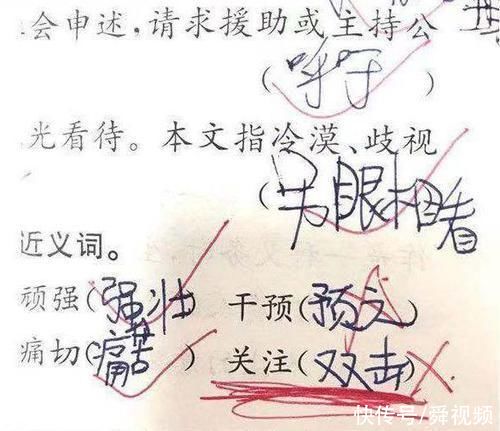 会申述,请求援助或主持公
(呼吁)
光看待。本文指冷漠、歧视
(另眼相看
近义词。
顽强(强壮 干预(预文)
痛切(痛苦) 关注(双击)
快传号/舜视频